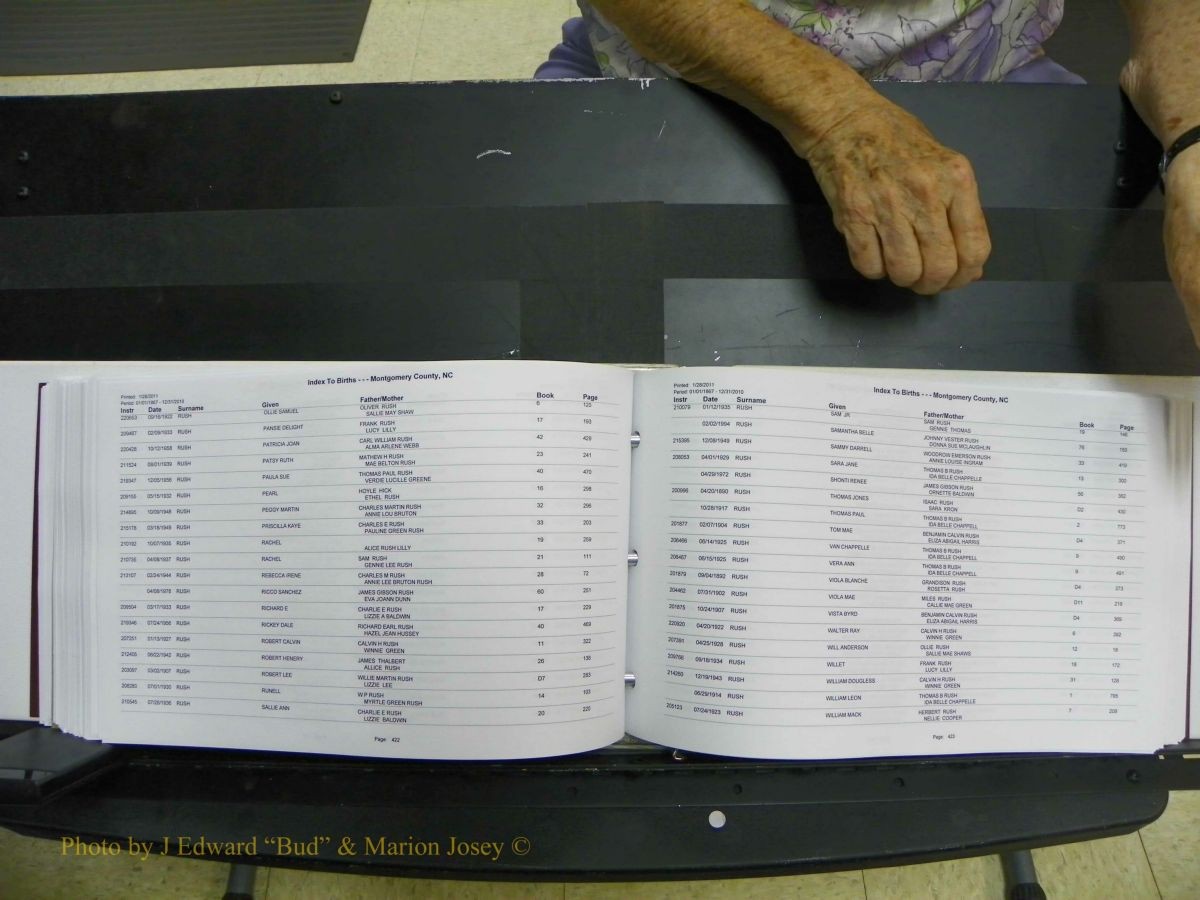 Index To Births - - - Montgomery County, NC
Printed: 1/28/2011
Period: 01/01/1867 - 12/31/2010
Instr Date Surname Given Father/Mother Book Page
RUSH OLLIE SAMUEL OLIVER RUSH 6 125
SALLIE MAY SHAW
209487 02/09/1933 RUSH PANSIE DELIGHT FRANK RUSH 17 193
LUCY LILLY
220428 10/12/1958 RUSH PATRICIA JOAN CARL WILLIAM RUSH 42 429
ALMA ARLENE WEBB
211524 09/01/1939 RUSH PATSY RUTH MATHEW H RUSH 23 241
MAE BELTON RUSH
RUSH PAULA SUE THOMAS PAUL RUSH 40 470
VERDIE LUCILLE GREENE
209155 05/15/1932 RUSH PEARL HOYLE HICK 16 298
ETHEL RUSH
214895 10/09/1948 RUSH PEGGY MARTIN CHARLES MARTIN RUSH 32 296
ANNIE LOU BRUTON
215178 03/18/1949 RUSH PRISCILLA KAYE CHARLES E RUSH 33 203
PAULINE GREEN RUSH
210192 10/07/1935 RUSH RACHEL 19 259
ALICE RUSH LILLY
210735 04/08/1937 RUSH RACHEL SAM RUSH 21 111
GENNIE LEE RUSH
213107 02/24/1944 RUSH REBECCA IRENE CHARLES M RUSH 28 72
ANNIE LEE BRUTON RUSH
04/08/1976 RUSH RICCO SANCHEZ JAMES GIBSON RUSH 60 251
EVA JOANN DUNN
209504 03/17/1933 RUSH RICHARD E CHARLIE E RUSH 17 229
LIZZIE A BALDWIN
219846 07/24/1956 RUSH RICKEY DALE RICHARD EARL RUSH 40 469
HAZEL JEAN HUSSEY
207251 01/13/1927 RUSH ROBERT CALVIN CALVIN H RUSH 11 322
WINNIE GREEN
212405 06/22/1942 RUSH ROBERT HENERY JAMES THALBERT 26 138
ALLICE RUSH
203097 03/02/1907 RUSH ROBERT LEE WILLIE MARTIN RUSH D7 283
LIZZIE LEE
208280 07/01/1930 RUSH RUNELL W P RUSH 14 193
MYRTLE GREEN RUSH
210545 07/26/1936 RUSH SALLIE ANN CHARLIE E RUSH 20 220
LIZZIE BALDWIN
Page: 422
Index To Births - - - Montgomery County, NC
Printed: 1/28/2011
Period: 01/01/1867 - 12/31/2010
Instr Date Surname Given Father/Mother Book Page
210079 01/12/1935 RUSH SAM JR SAM RUSH 19 146
GENNIE THOMAS
02/02/1994 RUSH SAMANTHA BELLE JOHNNY VESTER RUSH 76
DONNA SUE MCLAUGHLIN
215395 12/08/1949 RUSH SAMMY DARRELL WOODROW EMERSON RUSH 33 419
ANNIE LOUISE INGRAM
208053 04/01/1929 RUSH SARA JANE THOMAS B RUSH 13 300
IDA BELLE CHAPPELLE
04/29/1972 RUSH SHONTI RENEE JAMES GIBSON RUSH 56 362
ORNETTE BALDWIN
200996 04/20/1890 RUSH THOMAS JONES ISAAC RUSH D2 430
SARA KRON
10/28/1917 RUSH THOMAS PAUL THOMAS B RUSH 2 773
IDA BELLE CHAPPELL
201877 02/07/1904 RUSH TOM MAE BENJAMIN CALVIN RUSH D4 371
ELIZA ABIGAIL HARRIS
206466 06/14/1925 RUSH VAN CHAPPELLE THOMAS B RUSH 9 490
IDA BELLE CHAPPELL
206467 06/15/1925 RUSH VERA ANN THOMAS B RUSH 9 491
IDA BELLE CHAPPELL
201879 09/04/1892 RUSH VIOLA BLANCHE GRANDISON RUSH D4 373
ROSETTA RUSH
204462 07/01/1902 RUSH VIOLA MAE MILES RUSH D11 218
CALLIE MAE GREEN
201875 10/24/1907 RUSH VISTA BYRD BENJAMIN CALVIN RUSH D4 369
ELIZA ABIGAIL HARRIS
220920 04/20/1922 RUSH WALTER RAY CALVIN H RUSH 6 392
WINNIE GREEN
207391 04/25/1928 RUSH WILL ANDERSON OLLIE RUSH 12 16
SALLIE MAE SHAWS
209766 09/18/1934 RUSH WILLET FRANK RUSH 18 172
LUCY LILLY
214260 12/19/1943 RUSH WILLIAM DOUGLESS CALVIN H RUSH 31 128
WINNIE GREEN
06/29/1914 RUSH WILLIAM LEON THOMAS B RUSH 1 795
IDA BELLE CHAPPELLE
205123 07/24/1923 RUSH WILLIAM MACK HERBERT RUSH 7 209
NELLIE COOPER
Page: 423
Photo by J Edward “Bud” & Marion Josey ©